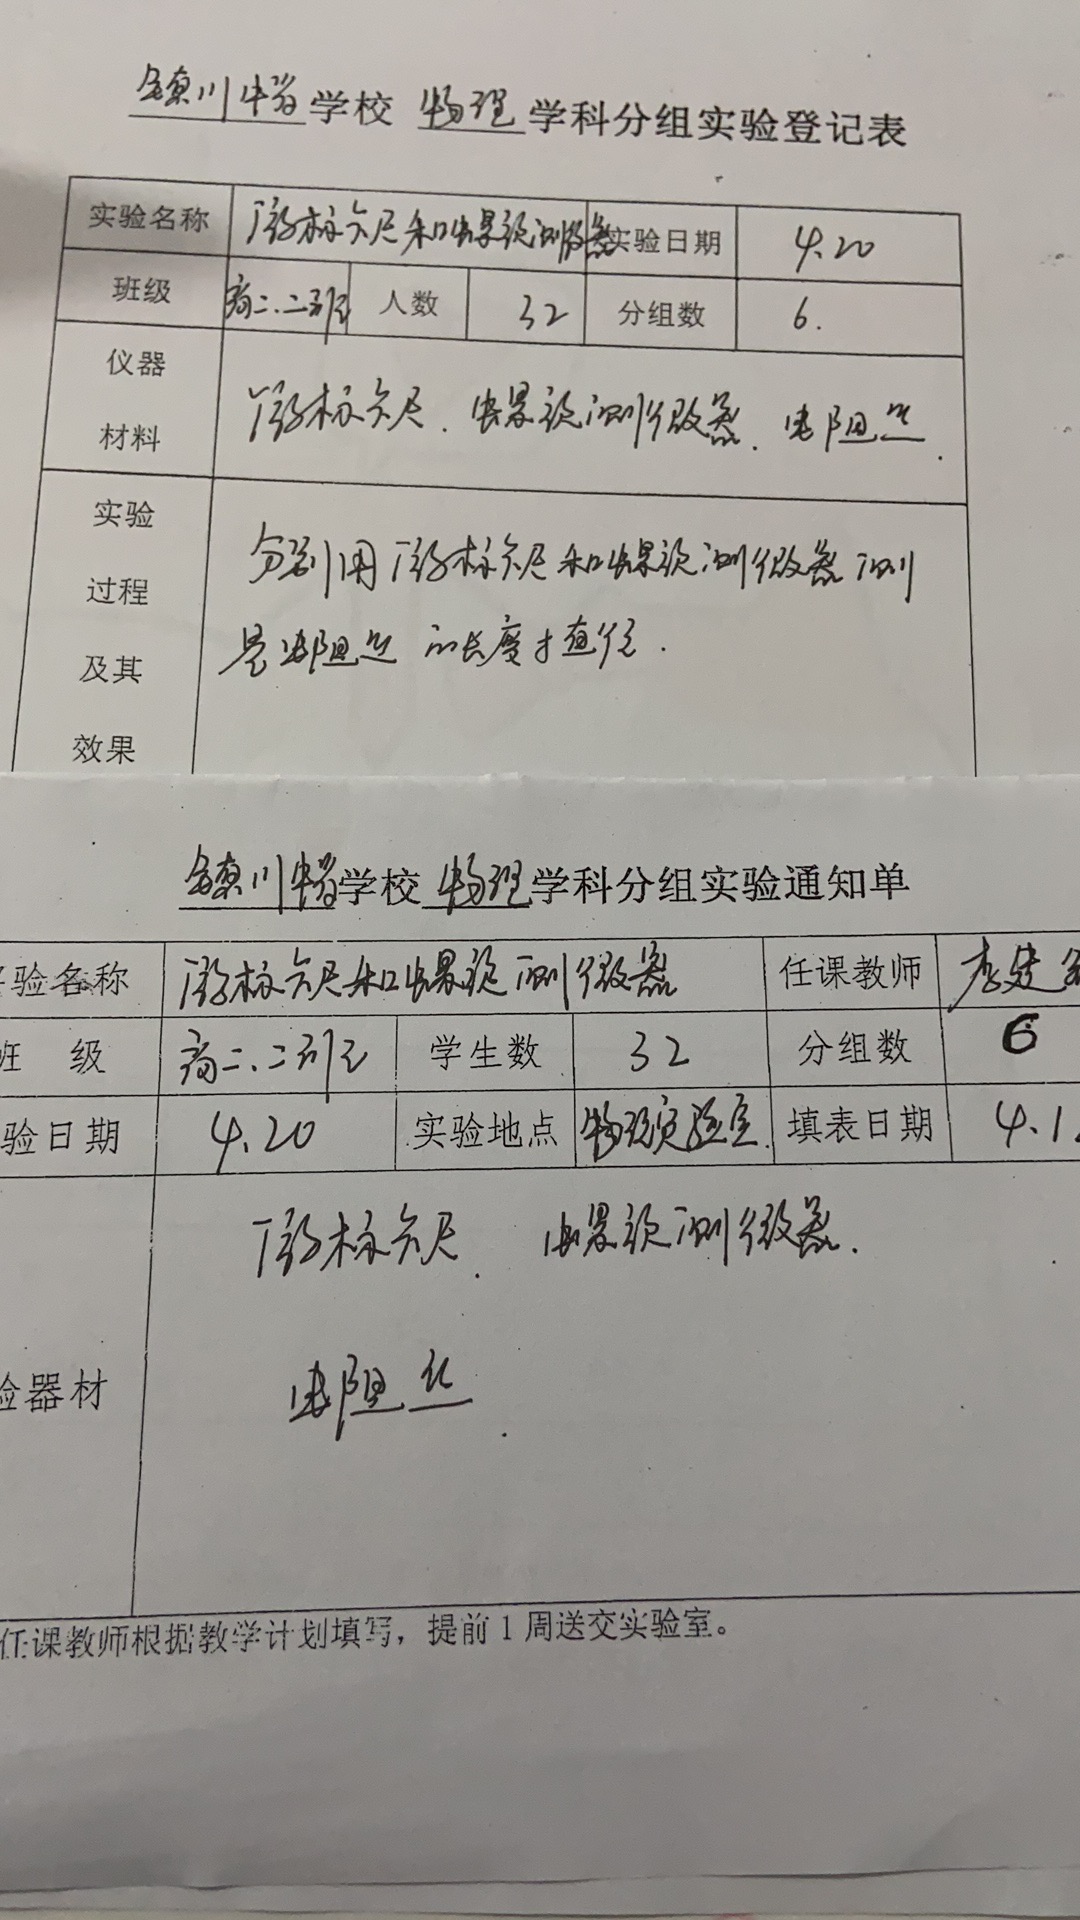 镇川中学学校 物理 学科分组实验登记表
实验名称 游标卡尺和螺旋测微器 实验日期 4.20
班级 高二.二班 人数 32 分组数 6.
仪器 材料 游标卡尺.螺旋测微器.电阻丝.
实验 分别用游标卡尺和螺旋测微器测
过程 量电阻丝的长度才直径.
及其
效果
镇川中学学校 物理 学科分组实验通知单
验名称 游标卡尺和螺旋测微器 任课教师 李建
班 级 高二.二班 学生数 32 分组数 6
验日期 4.20 实验地点 物理实验室. 填表日期 4.1
游标卡尺. 螺旋测微器.
验器材 电阻丝.
任课教师根据教学计划填写，提前1周送交实验室。